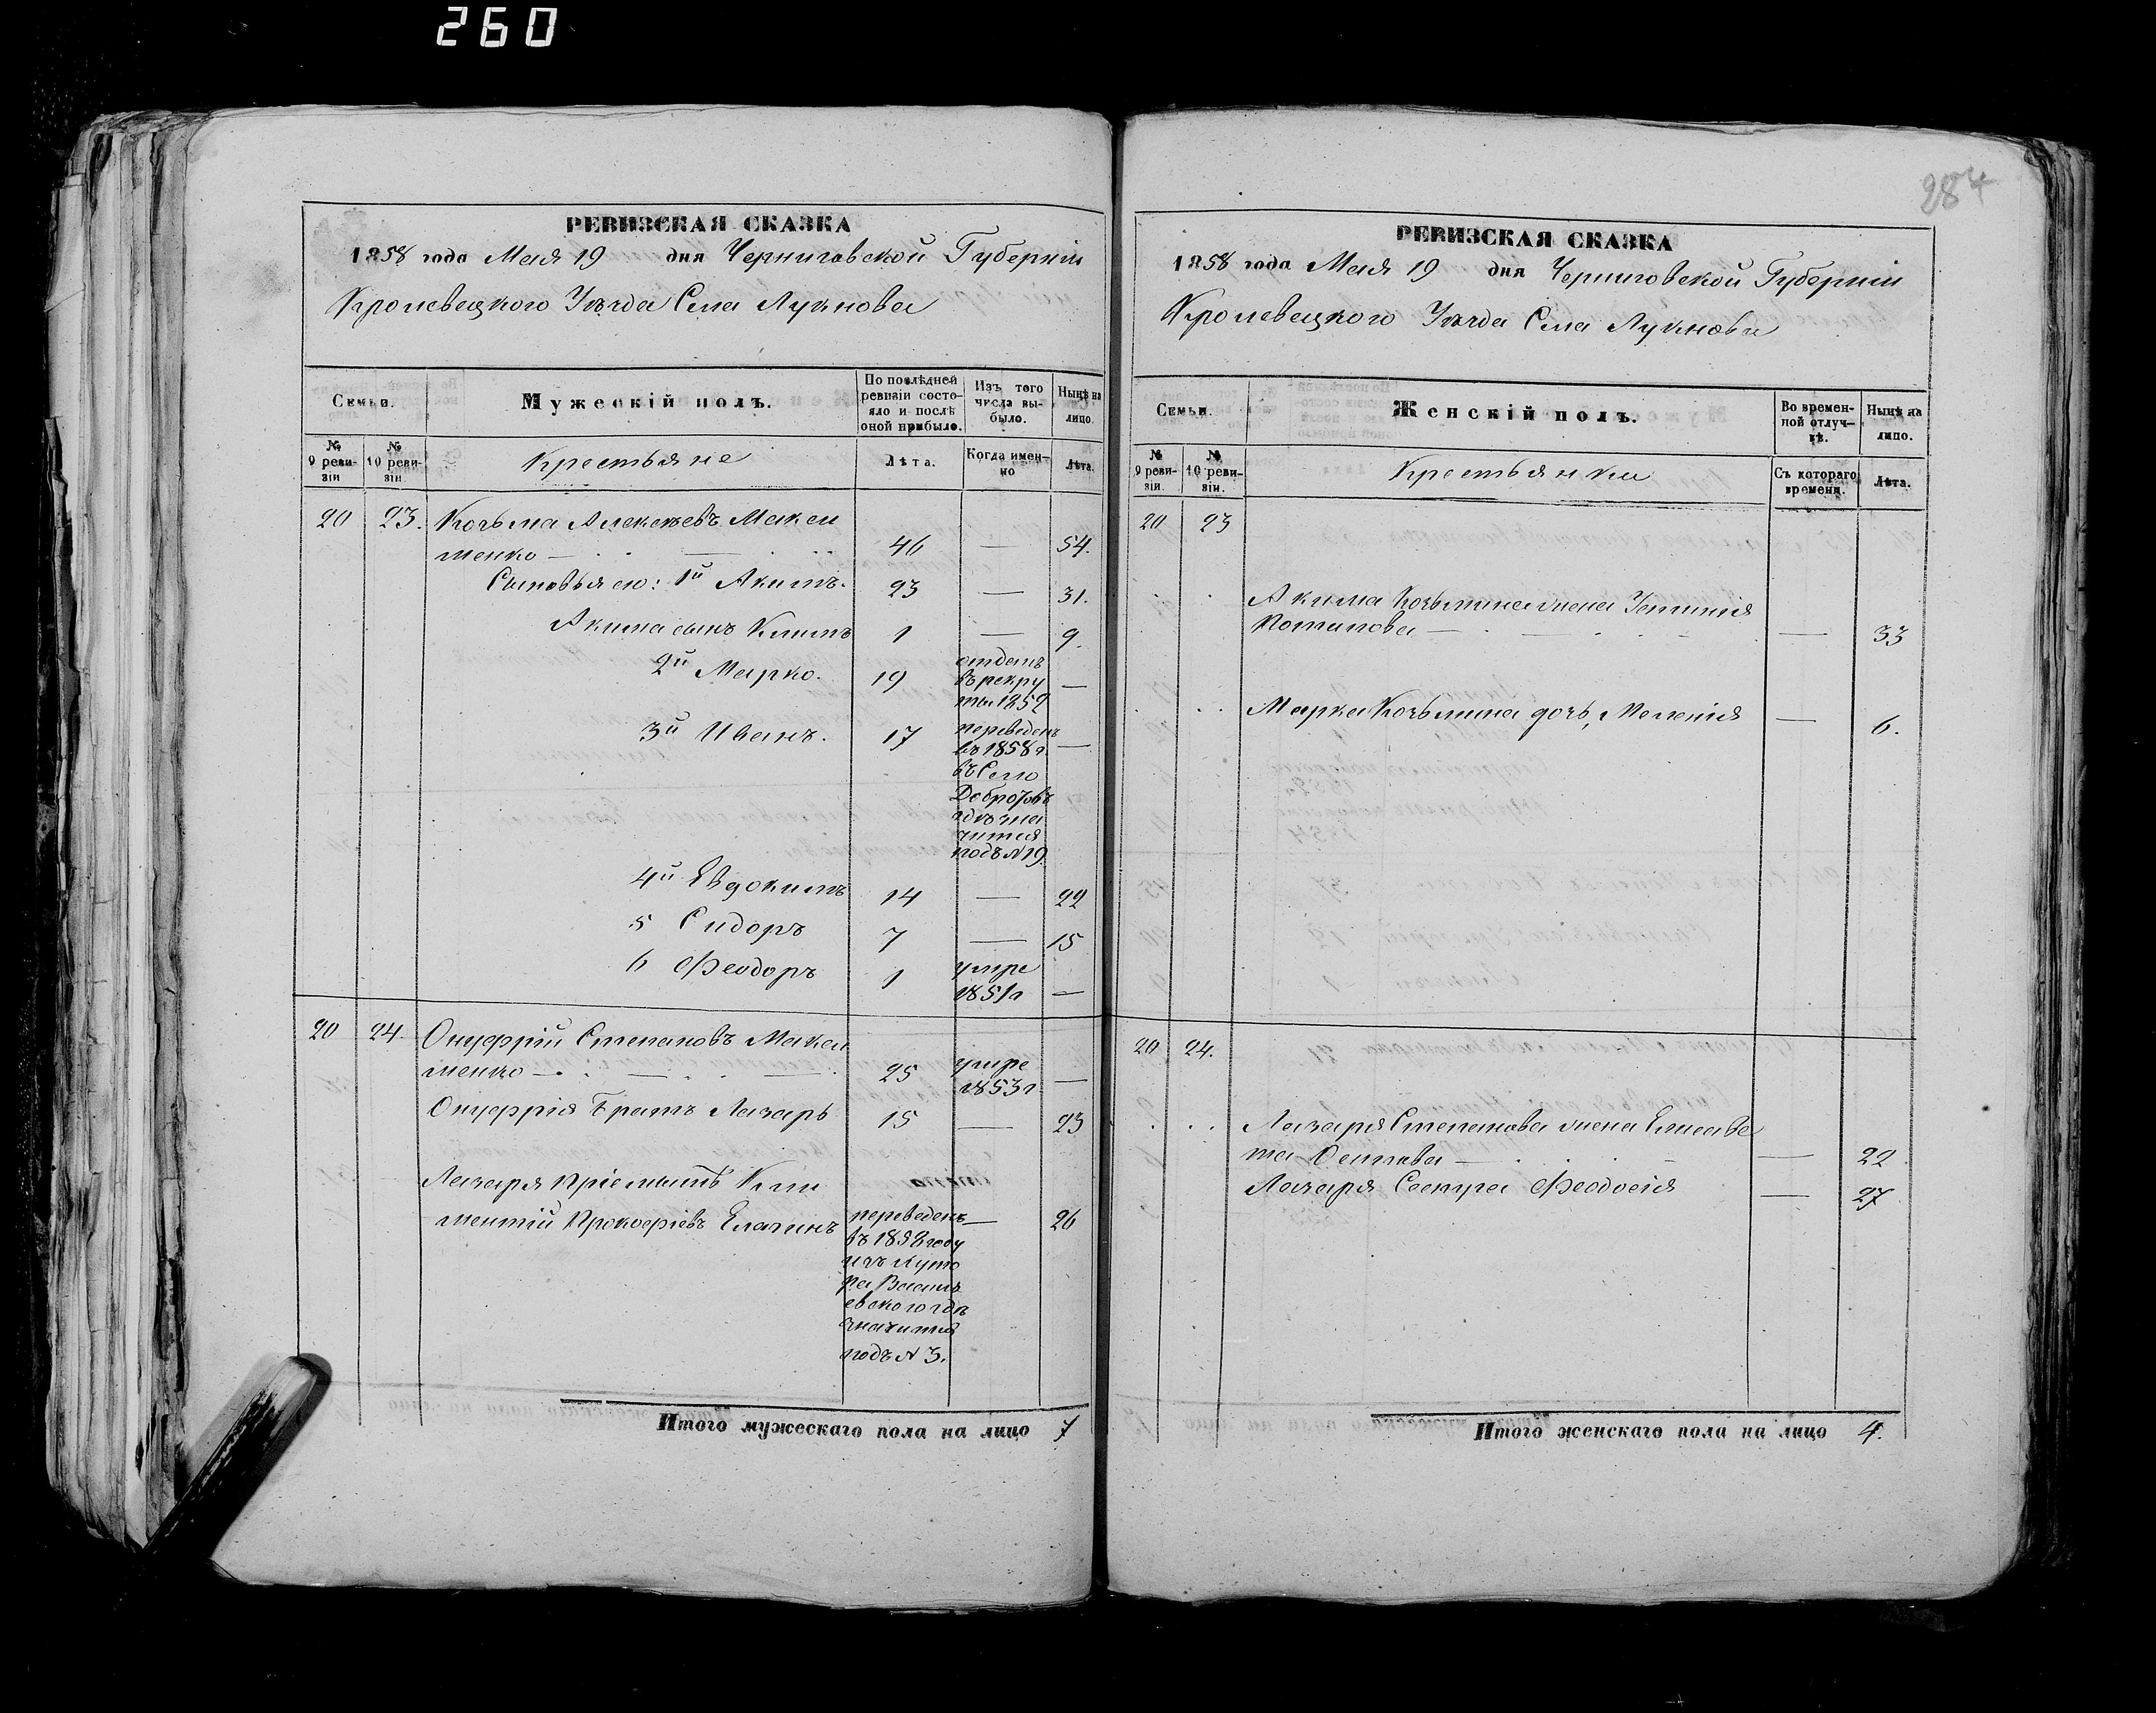 260
РЕВИЗСКАЯ СКАЗКА
1858 года Мая 19 дня Черниговской Губерніи
Кролевецкого Уѣзда Села Лукнова
Семьи.
Мужескій полъ.
По послѣдней ревизіи состояло и послѣ оной прибыло.
Изъ того числа выбыло.
Нынѣ на лицо.
№ 9 ревизіи
№ 10 ревизіи.
Крестьяне
Лѣта.
Когда именно
Лѣта.
20 23. Козьма Алексѣевъ Макси
менко — 46 — 54.
Сыновья его: 1й Акимъ. 23 — 31.
Акима сынъ Климъ 1 — 9.
2й Марко. 19 отданъ —
въ рекру
ты 1852
3й Иванъ. 17 переведенъ —
въ 1858 г.
въ Село
Добротовъ
гдѣ зна
чится
подъ N 19.
4й Евдокимъ 14 — 22
5 Сидоръ 7 — 15
6 Феодоръ 1 умре
1851г —
20 24. Онуфрій Степановъ Макси
менко — 25 умре
1853г. —
Онуфрія Братъ Лазарь 15 — 23
Лазаря пріемышъ Кли
ментій Прокофіевъ переведенъ — 26
въ 1852 году
изъ Хуто
ра Василь
евского гдѣ
значится
подъ N 3.
Итого мужескаго пола на лицо 7
284
РЕВИЗСКАЯ СКАЗКА
1858 года Мая 19 дня Черниговской Губерніи
Кролевецкого Уѣзда Села Лукнова
Семьи.
Женскій полъ.
Во временной отлучкѣ.
Нынѣ на лицо.
№ 9 ревизіи.
№ 10 ревизіи.
Крестьянки
Съ котораго времени.
Лѣта.
20 23
Акима Козьмина жена Устинія
Потапова — — 33
Марка Козьмина дочь, Меланія — 6.
20 24.
Лазаря Степанова жена Елисаве
та Осипова — — 22
Лазаря Сестра Феодосія — 27
Итого женскаго пола на лицо 4.